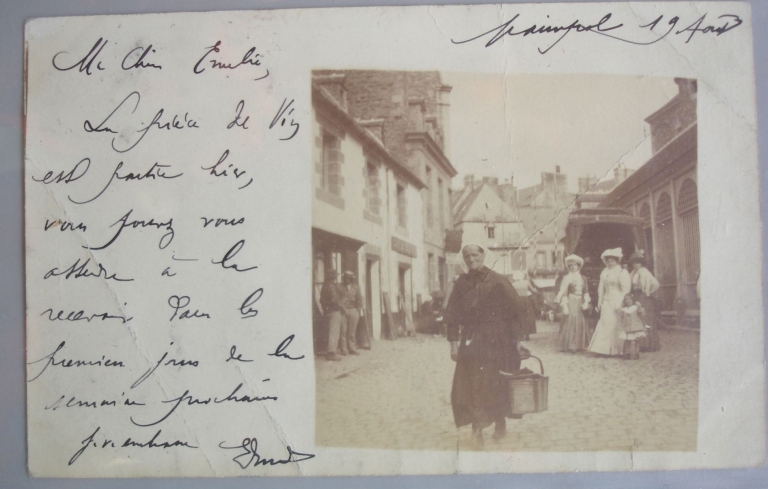 Paimpol 19 Août
Ma Chère Emelie,
La pièce de Vin
est partie hier,
vous pouvez vous
attendre à la
recevoir dans les
premiers jours de la
semaine prochaine